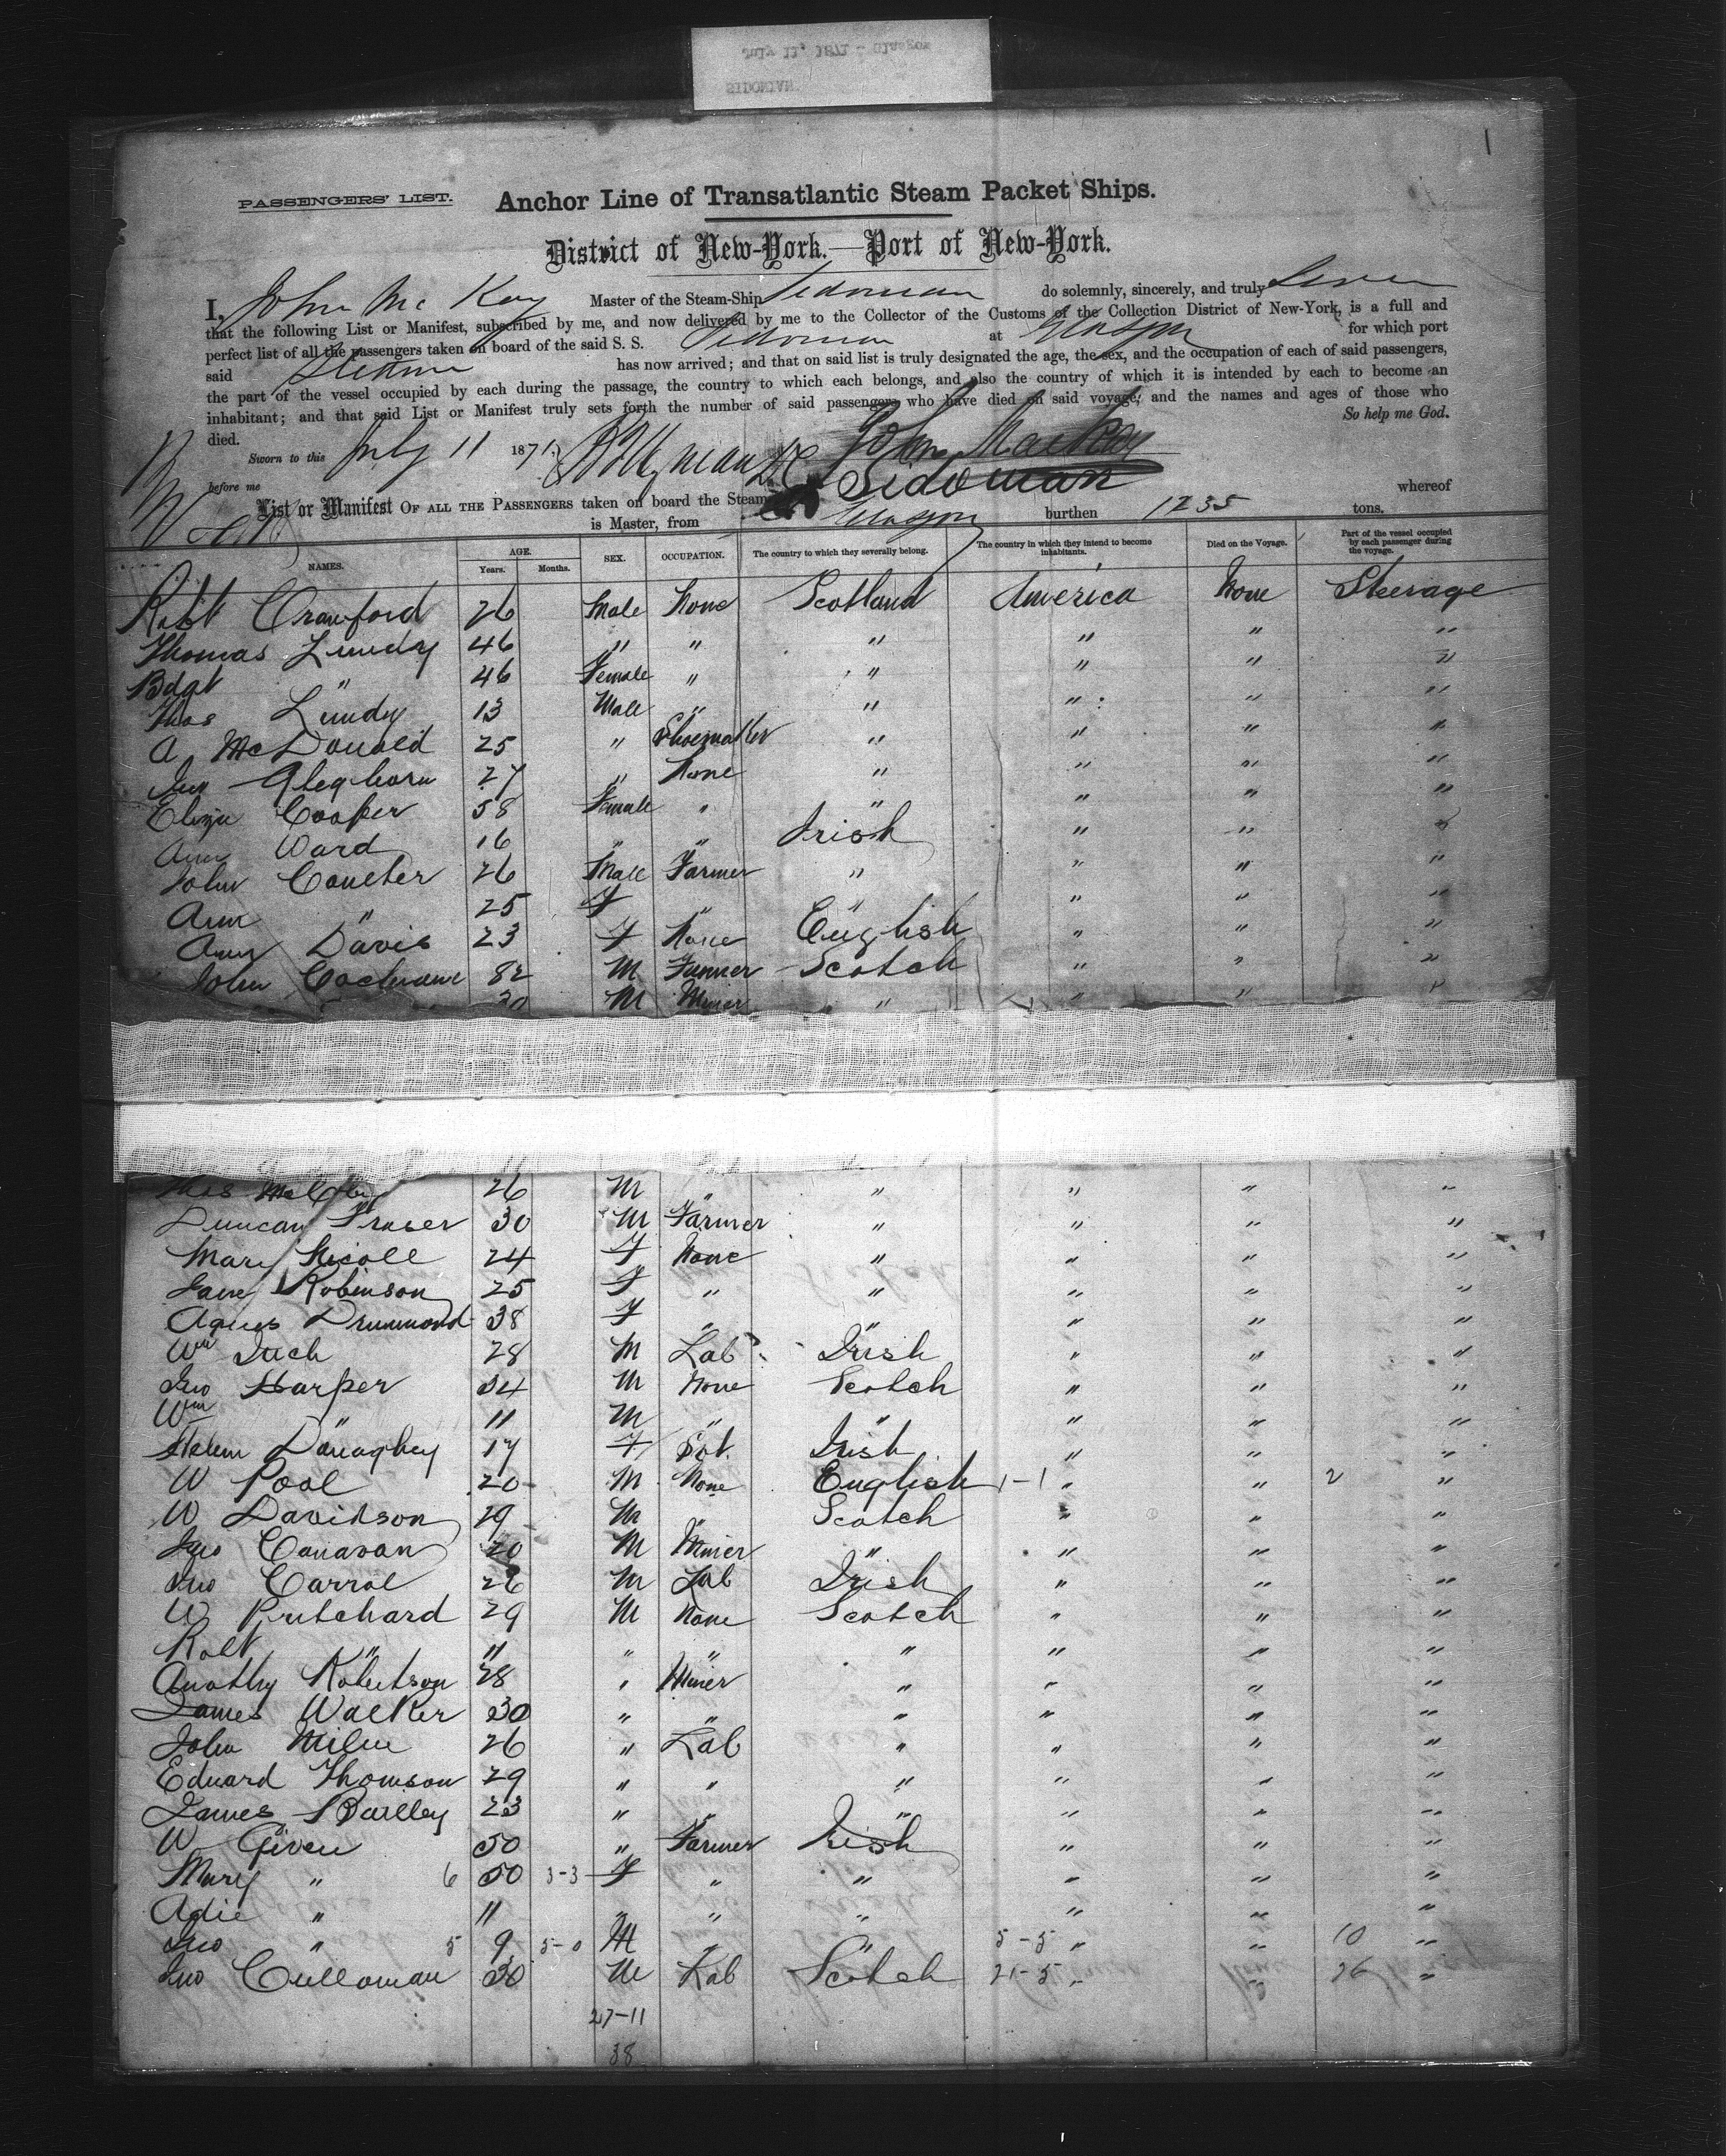 July 11, 1871 - Glasgow
SIDONIAN.
1
PASSENGERS' LIST. Anchor Line of Transatlantic Steam Packet Ships.
District of New-York.—Port of New-York.
I, John Mc Kay Master of the Steam-Ship Sidonian do solemnly, sincerely, and truly Swear
that the following List or Manifest, subscribed by me, and now delivered by me to the Collector of the Customs of the Collection District of New-York, is a full and
perfect list of all the passengers taken on board of the said S. S. Sidonian at Glasgow for which port
said Steamer has now arrived; and that on said list is truly designated the age, the sex, and the occupation of each of said passengers,
the part of the vessel occupied by each during the passage, the country to which each belongs, and also the country of which it is intended by each to become an
inhabitant; and that said List or Manifest truly sets forth the number of said passengers who have died on said voyage, and the names and ages of those who
died. So help me God.
Sworn to this July 11 1871 John MacKay
before me
List or Manifest OF ALL THE PASSENGERS taken on board the Steam Sidonian whereof
is Master, from Glasgow burthen 1235 tons.
NAMES. AGE. Years. Months. SEX. OCCUPATION. The country to which they severally belong. The country in which they intend to become inhabitants. Died on the Voyage. Part of the vessel occupied by each passenger during the voyage.
Robt Crawford 26 Male None Scotland America None Steerage
Thomas Lundy 46 " " " " " "
Bdgt " 46 Female " " " " "
Thos Lundy 13 Male " " " " "
A McDonald 25 " Shoemaker " " " "
Gleghorn 27 " None " " " "
Eliza Cooper 58 Female " " " " "
Ann Ward 16 " " Irish " " "
John Coulter 26 Male Farmer " " " "
Ann " 25 F " " " " "
Davis 23 F None English " " "
John Cochrane 82 M Farmer Scotch " " "
20 M Miner " " " "
26 M " " " " "
Duncan Fraser 30 M Farmer " " " "
Mary Nicoll 24 F None " " " "
Jane Robinson 25 F " " " " "
Agnes Drummond 38 F " " " " "
Wm 28 M Lab Irish " " "
Jno Harper 34 M None Scotch " " "
Wm " 11 M " " " " "
Helen Donaghey 17 F Irish " " "
W Pool 20 M None English 1-1 " " 2 "
W Davidson 29 M " Scotch " " "
Jno Canavan 20 M Miner " " " "
Jno Carrol 26 M Lab Irish " " "
W Pritchard 29 M None Scotch " " "
Robt " 11 " " " " " "
Robertson 28 " Miner " " " "
James Walker 30 " " " " " "
John Milne 26 " Lab " " " "
Edward Thomson 29 " " " " " "
James Bartley 23 " " " " " "
W Given 50 " Farmer Irish " " "
Mary " 6 50 3-3 F " " " " "
Adie " 11 " " " " " "
Jno " 5 9 5-0 M " " 5-5 " " 10 "
Jno Culloman 30 M Lab Scotch 21-5 " " 26 "
27-11
38